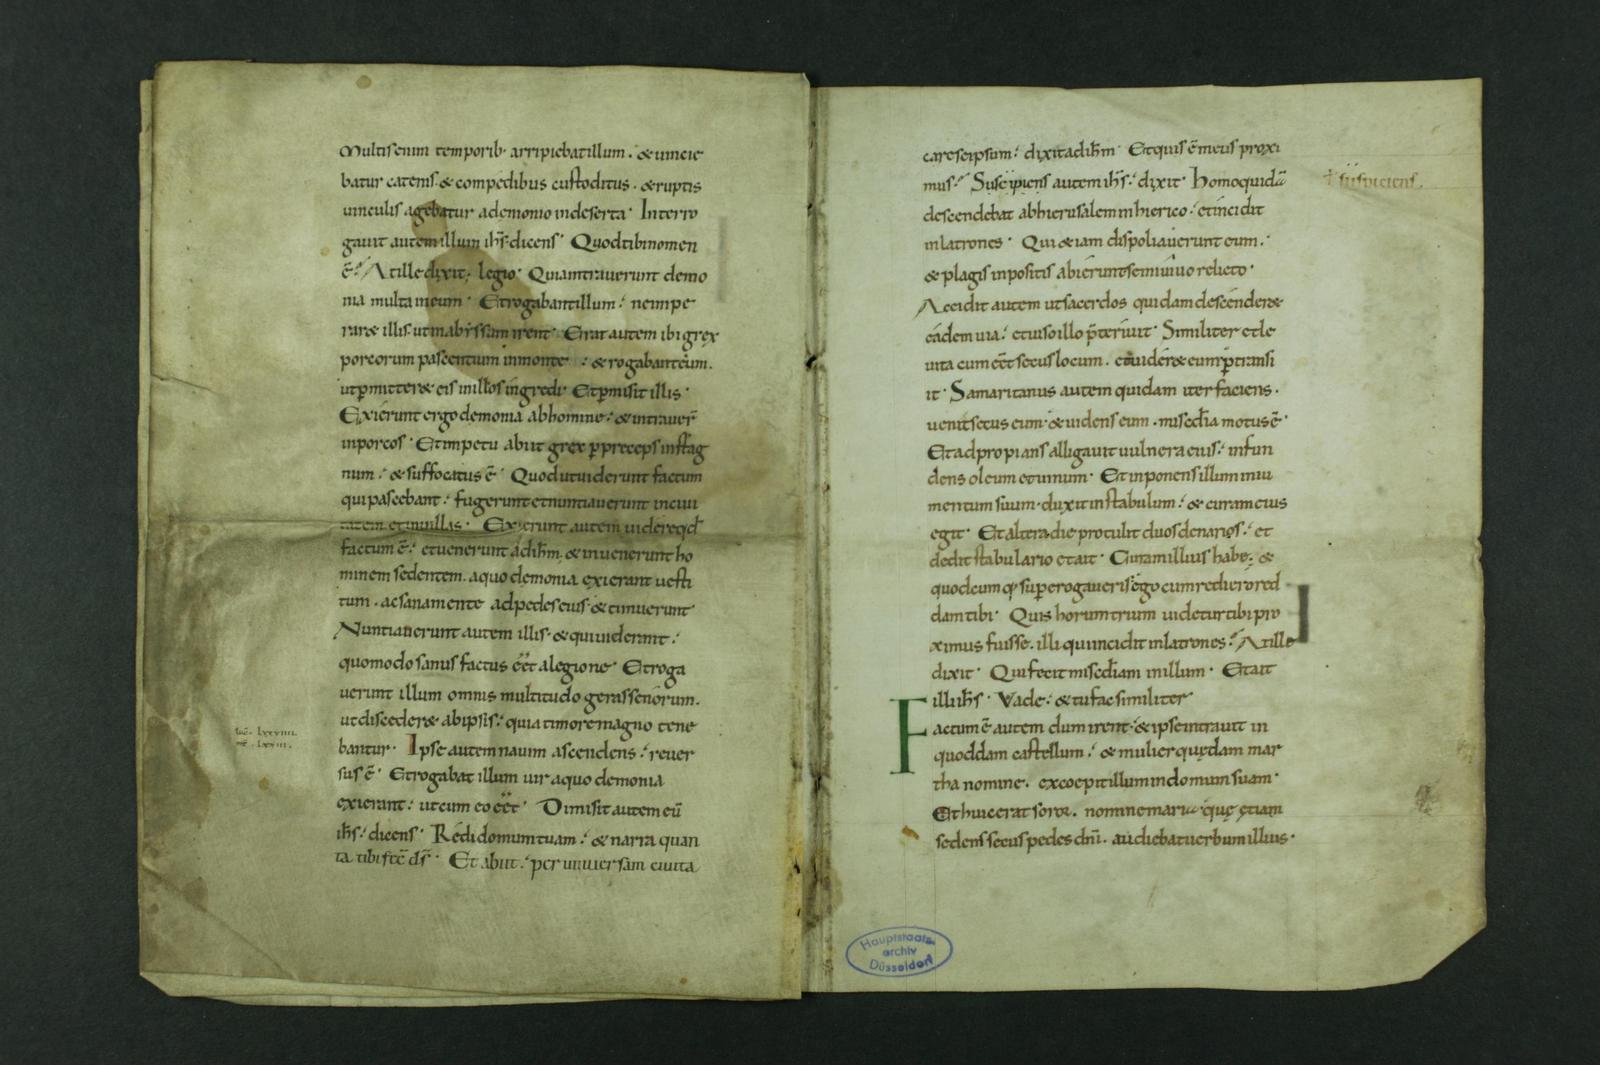 Multis enim temporib· arripiebat illum· & uincie
batur catenis· & compedibus custoditus· & ruptis
uinculis agebatur a demonio in deserta· Interro
gauit autem illum ihs̄· dicens· Quod tibi nomen
ē· At ille dixit· legio· Quia intrauerunt demo
nia multa in eum· Et rogabant illum· ne impe
rar& illis· ut in abyssum irent· Erat autem ibi grex
porcorum pascentium in monte· & rogabant eum·
ut ꝑmitter& eis in illos ingredi· Et ꝑmisit illis·
Exierunt ergo demonia ab homine· & intrauer̄
in porcos· Et impetu abiit grex ꝑ preceps in stag
num· & suffocatus ē· Quod ut uiderunt factum
qui pascebant· fugerunt et nuntiauerunt in ciui
tatem et in uillas· Exierunt autem uidere qđ
factum ē· et uenerunt ad ihm̄· & inuenerunt ho
minem sedentem· a quo demonia exierant uesti
tum· ac sana mente ad pedes eius· & timuerunt
Nuntiauerunt autem illis· & qui uiderant·
quomodo sanus factus eēt a legione· Et roga
uerunt illum omnis multitudo gerassenorum·
ut disceder& ab ipsis· quia timore magno tene
bantur· Ipse autem nauim ascendens· reuer
sus ē· Et rogabat illum uir a quo demonia
exierant· ut cum eo eēt· Dimisit autem eū
ihs̄· dicens· Redi domum tuam· & narra quan
ta tibi fēc dş̄· Et abiit· per uniuersam ciuita
lxxviiii·
lxviii·
care seipsum· dixit ad ihm̄ Et quis ē meus proxi
mus· Suscipiens autem ihs̄· dixit· Homo quidā
† suspiciens
descendebat ab hierusalem in hierico· et incidit
in latrones· Qui & iam dispoliauerunt eum·
& plagis inpositis abierunt semiuiuo relicto·
Accidit autem ut sacerdos quidam descender&
eadem uia· et uiso illo p̄teriuit· Similiter et le
uita cum eēt secus locum· et uider& eum p̄transi
it· Samaritanus autem quidam iter faciens·
uenit secus eum· & uidens eum· mis̄c̄dia motus ē·
Et adpropians alligauit uulnera eius· infun
dens oleum et uinum· Et inponens illum in iu
mentum suum· duxit in stabulum· & curam eius
egit· Et altera die protulit duos denarios· et
dedit stabulario et ait· Curam illius habe· &
quodcumq; supererogaueris· ego cum rediero red
dam tibi· Quis horum trium uidetur tibi pro
ximus fuisse· illi qui incidit in latrones· At ille
dixit· Qui fecit mis̄c̄diam in illum· Et ait
illi ihs̄· Vade· & tu fac similiter
Factum ē autem dum irent· & ipse intrauit in
quoddam castellum· & mulier quędam mar
tha nomine· excoepit illum in domum suam·
Et huic erat soror· nomine maria· quę etiam
sedens secus pedes dn̄i· audiebat uerbum illius·
Hauptstaats-
archiv
Düsseldorf